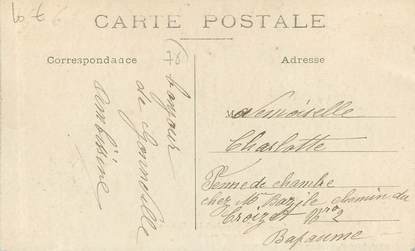 10 €
CARTE POSTALE
Correspondance
Adresse
76
bonjour
de Gonneville
Mademoiselle
Charlotte
femme de chambre
chez Mr Bazile chemin du
Croizet Nro 2
Bapaume